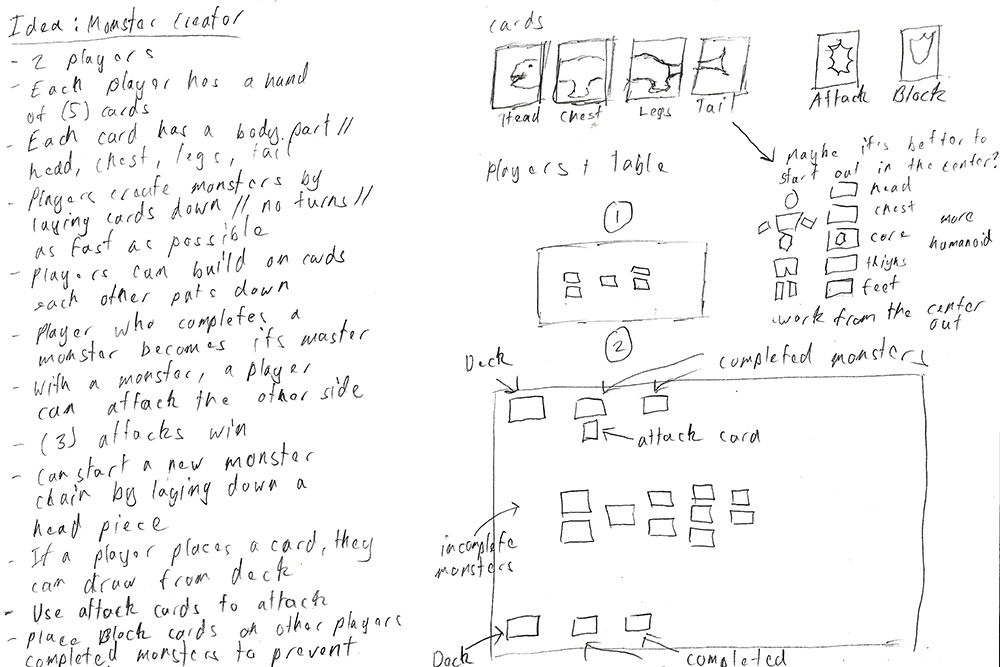 Idea: Monster Creator
- 2 players
- Each player has a hand
of (5) cards
- Each card has a body part //
head, chest, legs, tail
- Players create monsters by
laying cards down // no turns //
as fast as possible
- Players can build on cards
each other puts down
- Player who completes a
monster becomes its master
- with a monster, a player
can attack the other side
- (3) attacks win
- Can start a new monster
chain by laying down a
head piece
- If a player places a card, they
can draw from deck
- Use attack cards to attack
- place Block cards on other players
completed monsters to prevent
cards
Head Chest Legs Tail Attack Block
players + table
1
2
Maybe it's better to
start out in the center?
head
chest
core
thighs
feet
more
humanoid
work from the center
out
Deck
completed monsters
attack card
incomplete
monsters
Deck
completed